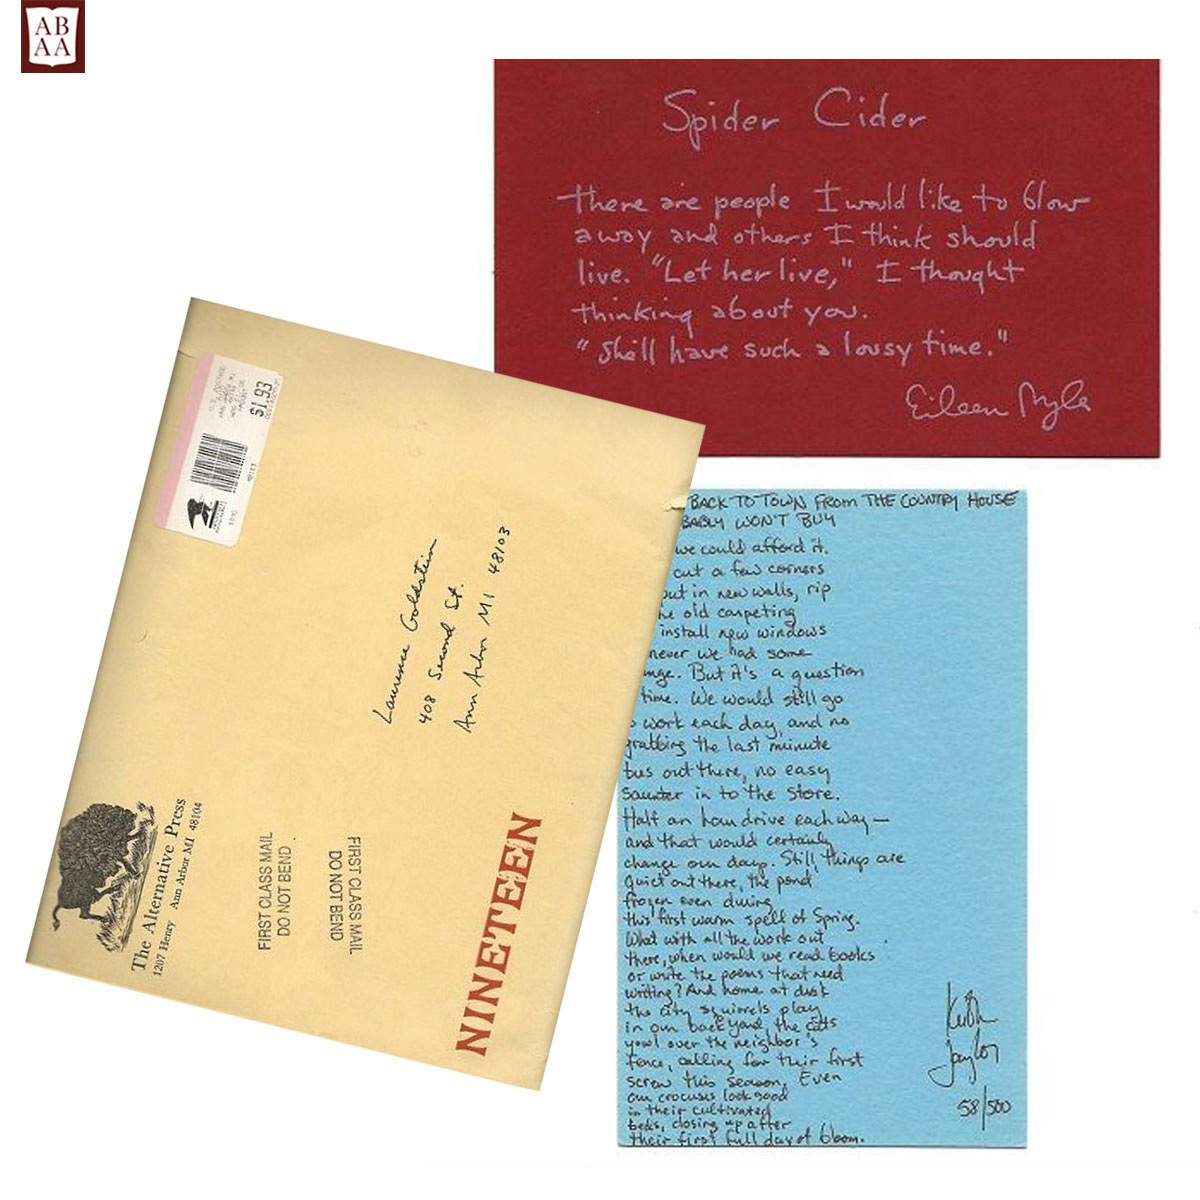 AB
AA
Spider Cider
there are people I would like to blow
away and others I think should
live. "Let her live," I thought
thinking about you.
"She'll have such a lousy time."
Eileen Myles
$1.93
Laurence Goldstein
408 Second St.
Ann Arbor MI 48103
The Alternative Press
1207 Henry Ann Arbor MI 48104
FIRST CLASS MAIL
DO NOT BEND
FIRST CLASS MAIL
DO NOT BEND
NINETEEN
BACK TO TOWN FROM THE COUNTRY HOUSE
BABLY WON'T BUY
we could afford it.
cut a few corners
put in new walls, rip
he old carpeting
install new windows
never we had some
ange. But it's a question
time. We would still go
o work each day, and no
grabbing the last minute
bus out there, no easy
saunter in to the store.
Half an hour drive each way—
and that would certainly
change our days. Still, things are
quiet out there, the pond
frozen even during
this first warm spell of Spring.
What with all the work out
there, when would we read books
or write the poems that need
writing? And home at dusk
the city squirrels play
in our backyard, the cats
yowl over the neighbor's
fence, calling for their first
screw this season. Even
our crocuses look good
in their cultivated
beds, closing up after
their first full day of bloom.
Keith
Taylor
58/500